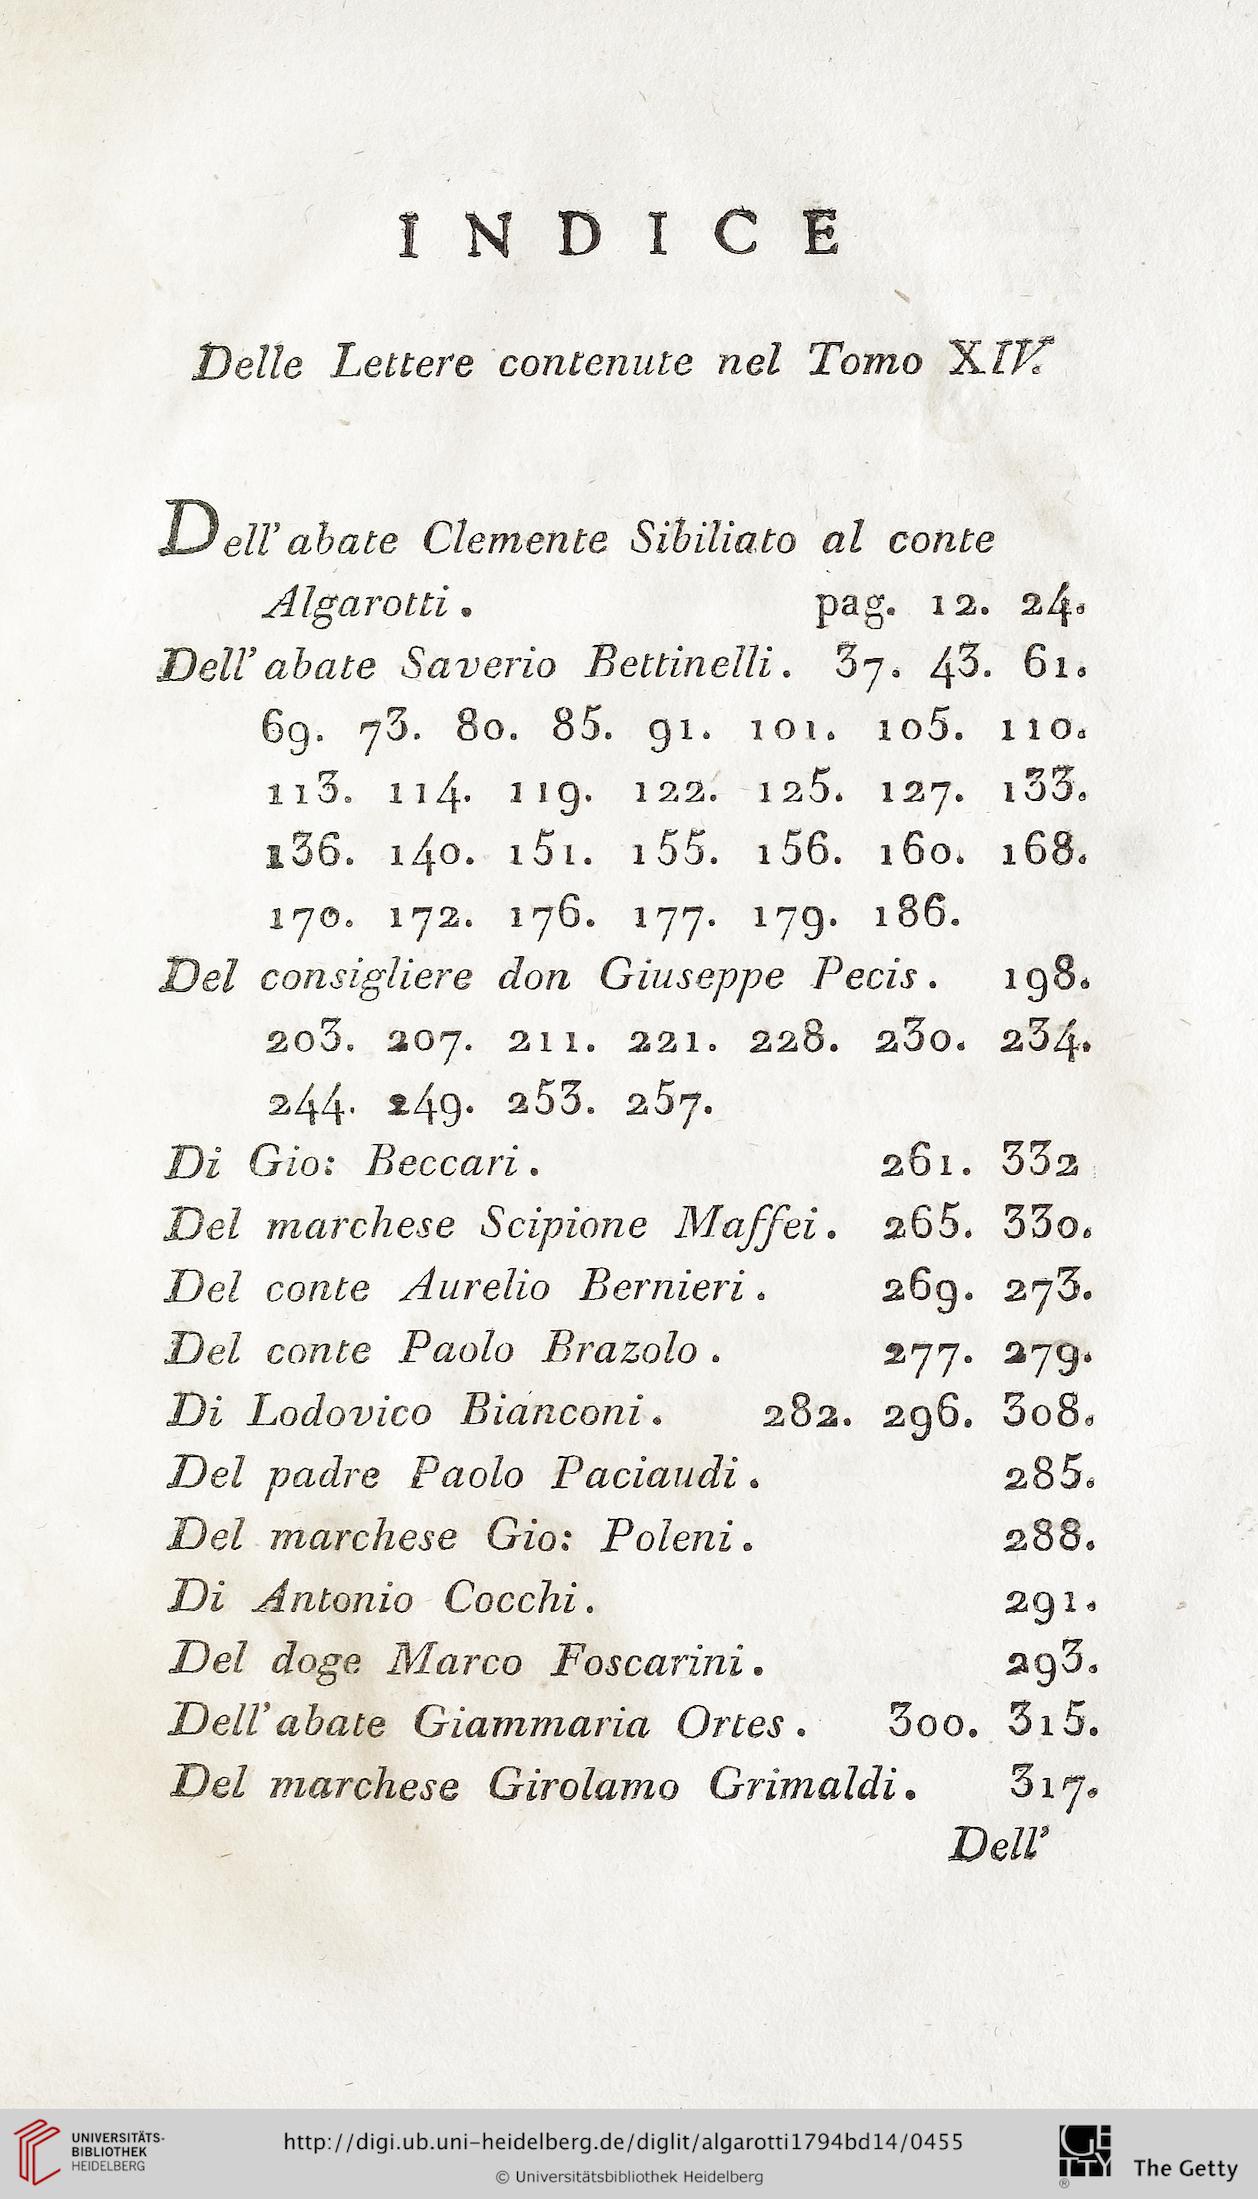 INDICE
Delle Lettere contenute nel Tomo XIV.
Dell' abate Clemente Sibiliato al conte
Algarotti. pag. 12. 24.
Dell' abate Saverio Bettinelli. 37. 43. 61.
69. 73. 80. 85. 91. 101. 105. 110.
113. 114. 119. 122. 125. 127. 133.
136. 140. 151. 155. 156. 160. 168.
170. 172. 176. 177. 179. 186.
Del consigliere don Giuseppe Pecis. 198.
203. 207. 211. 221. 228. 230. 234.
244. 249. 253. 257.
Di Gio: Beccari. 261. 332
Del marchese Scipione Maffei. 265. 330.
Del conte Aurelio Bernieri. 269. 273.
Del conte Paolo Brazolo. 277. 279.
Di Lodovico Bianconi. 282. 296. 308.
Del padre Paolo Paciaudi. 285.
Del marchese Gio: Poleni. 288.
Di Antonio Cocchi. 291.
Del doge Marco Foscarini. 293.
Dell' abate Giammaria Ortes. 300. 315.
Del marchese Girolamo Grimaldi. 317.
Dell'
UNIVERSITÄTS-
BIBLIOTHEK
HEIDELBERG
http://digi.ub.uni-heidelberg.de/diglit/algarotti1794bd14/0455
© Universitätsbibliothek Heidelberg
GETTY
®
The Getty